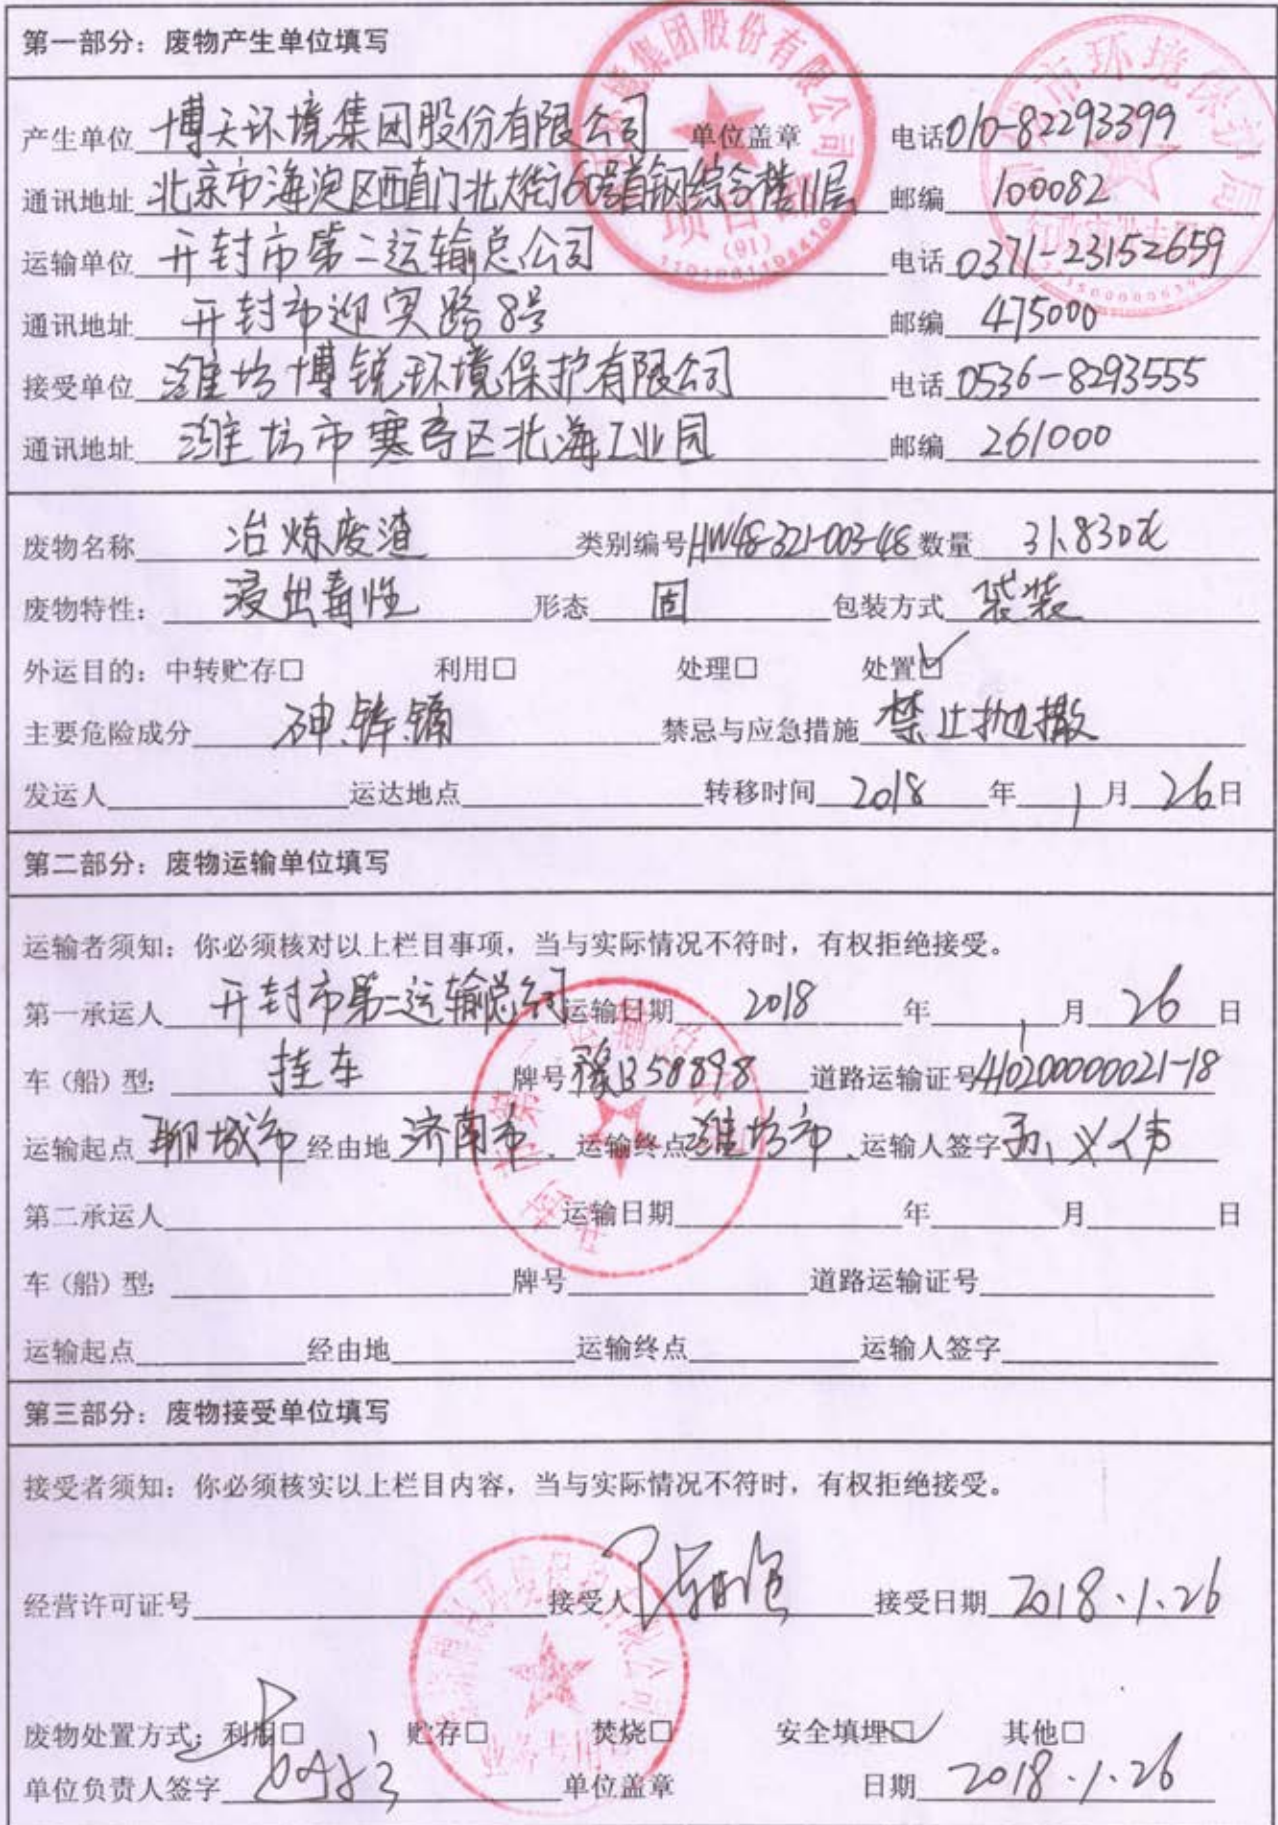 第一部分：废物产生单位填写
产生单位 博天环境集团股份有限公司 单位盖章 电话 010-82293399
通讯地址 北京市海淀区西直门北大街60号首钢综合楼11层 邮编 100082
运输单位 开封市第二运输总公司 电话 0371-23152659
通讯地址 开封市迎宾路8号 邮编 475000
接受单位 潍坊博锐环境保护有限公司 电话 0536-8293555
通讯地址 潍坊市寒亭区北海工业园 邮编 261000
废物名称 冶炼废渣 类别编号 HW48-321-003-48 数量 31.830吨
废物特性： 浸出毒性 形态 固 包装方式 袋装
外运目的：中转贮存□ 利用□ 处理□ 处置☑
主要危险成分 砷.锌.镉 禁忌与应急措施 禁止抛撒
发运人 运达地点 转移时间 2018 年 1 月 26 日
第二部分：废物运输单位填写
运输者须知：你必须核对以上栏目事项，当与实际情况不符时，有权拒绝接受。
第一承运人 开封市第二运输总公司 运输日期 2018 年 1 月 26 日
车（船）型： 挂车 牌号 豫B58898 道路运输证号 410200000021-18
运输起点 聊城市 经由地 济南市. 运输终点 潍坊市. 运输人签字
第二承运人 运输日期 年 月 日
车（船）型： 牌号 道路运输证号
运输起点 经由地 运输终点 运输人签字
第三部分：废物接受单位填写
接受者须知：你必须核实以上栏目内容，当与实际情况不符时，有权拒绝接受。
经营许可证号 接受人 接受日期 2018.1.26
废物处置方式：利用□ 贮存□ 焚烧□ 安全填埋☑ 其他□
单位负责人签字 单位盖章 日期 2018.1.26